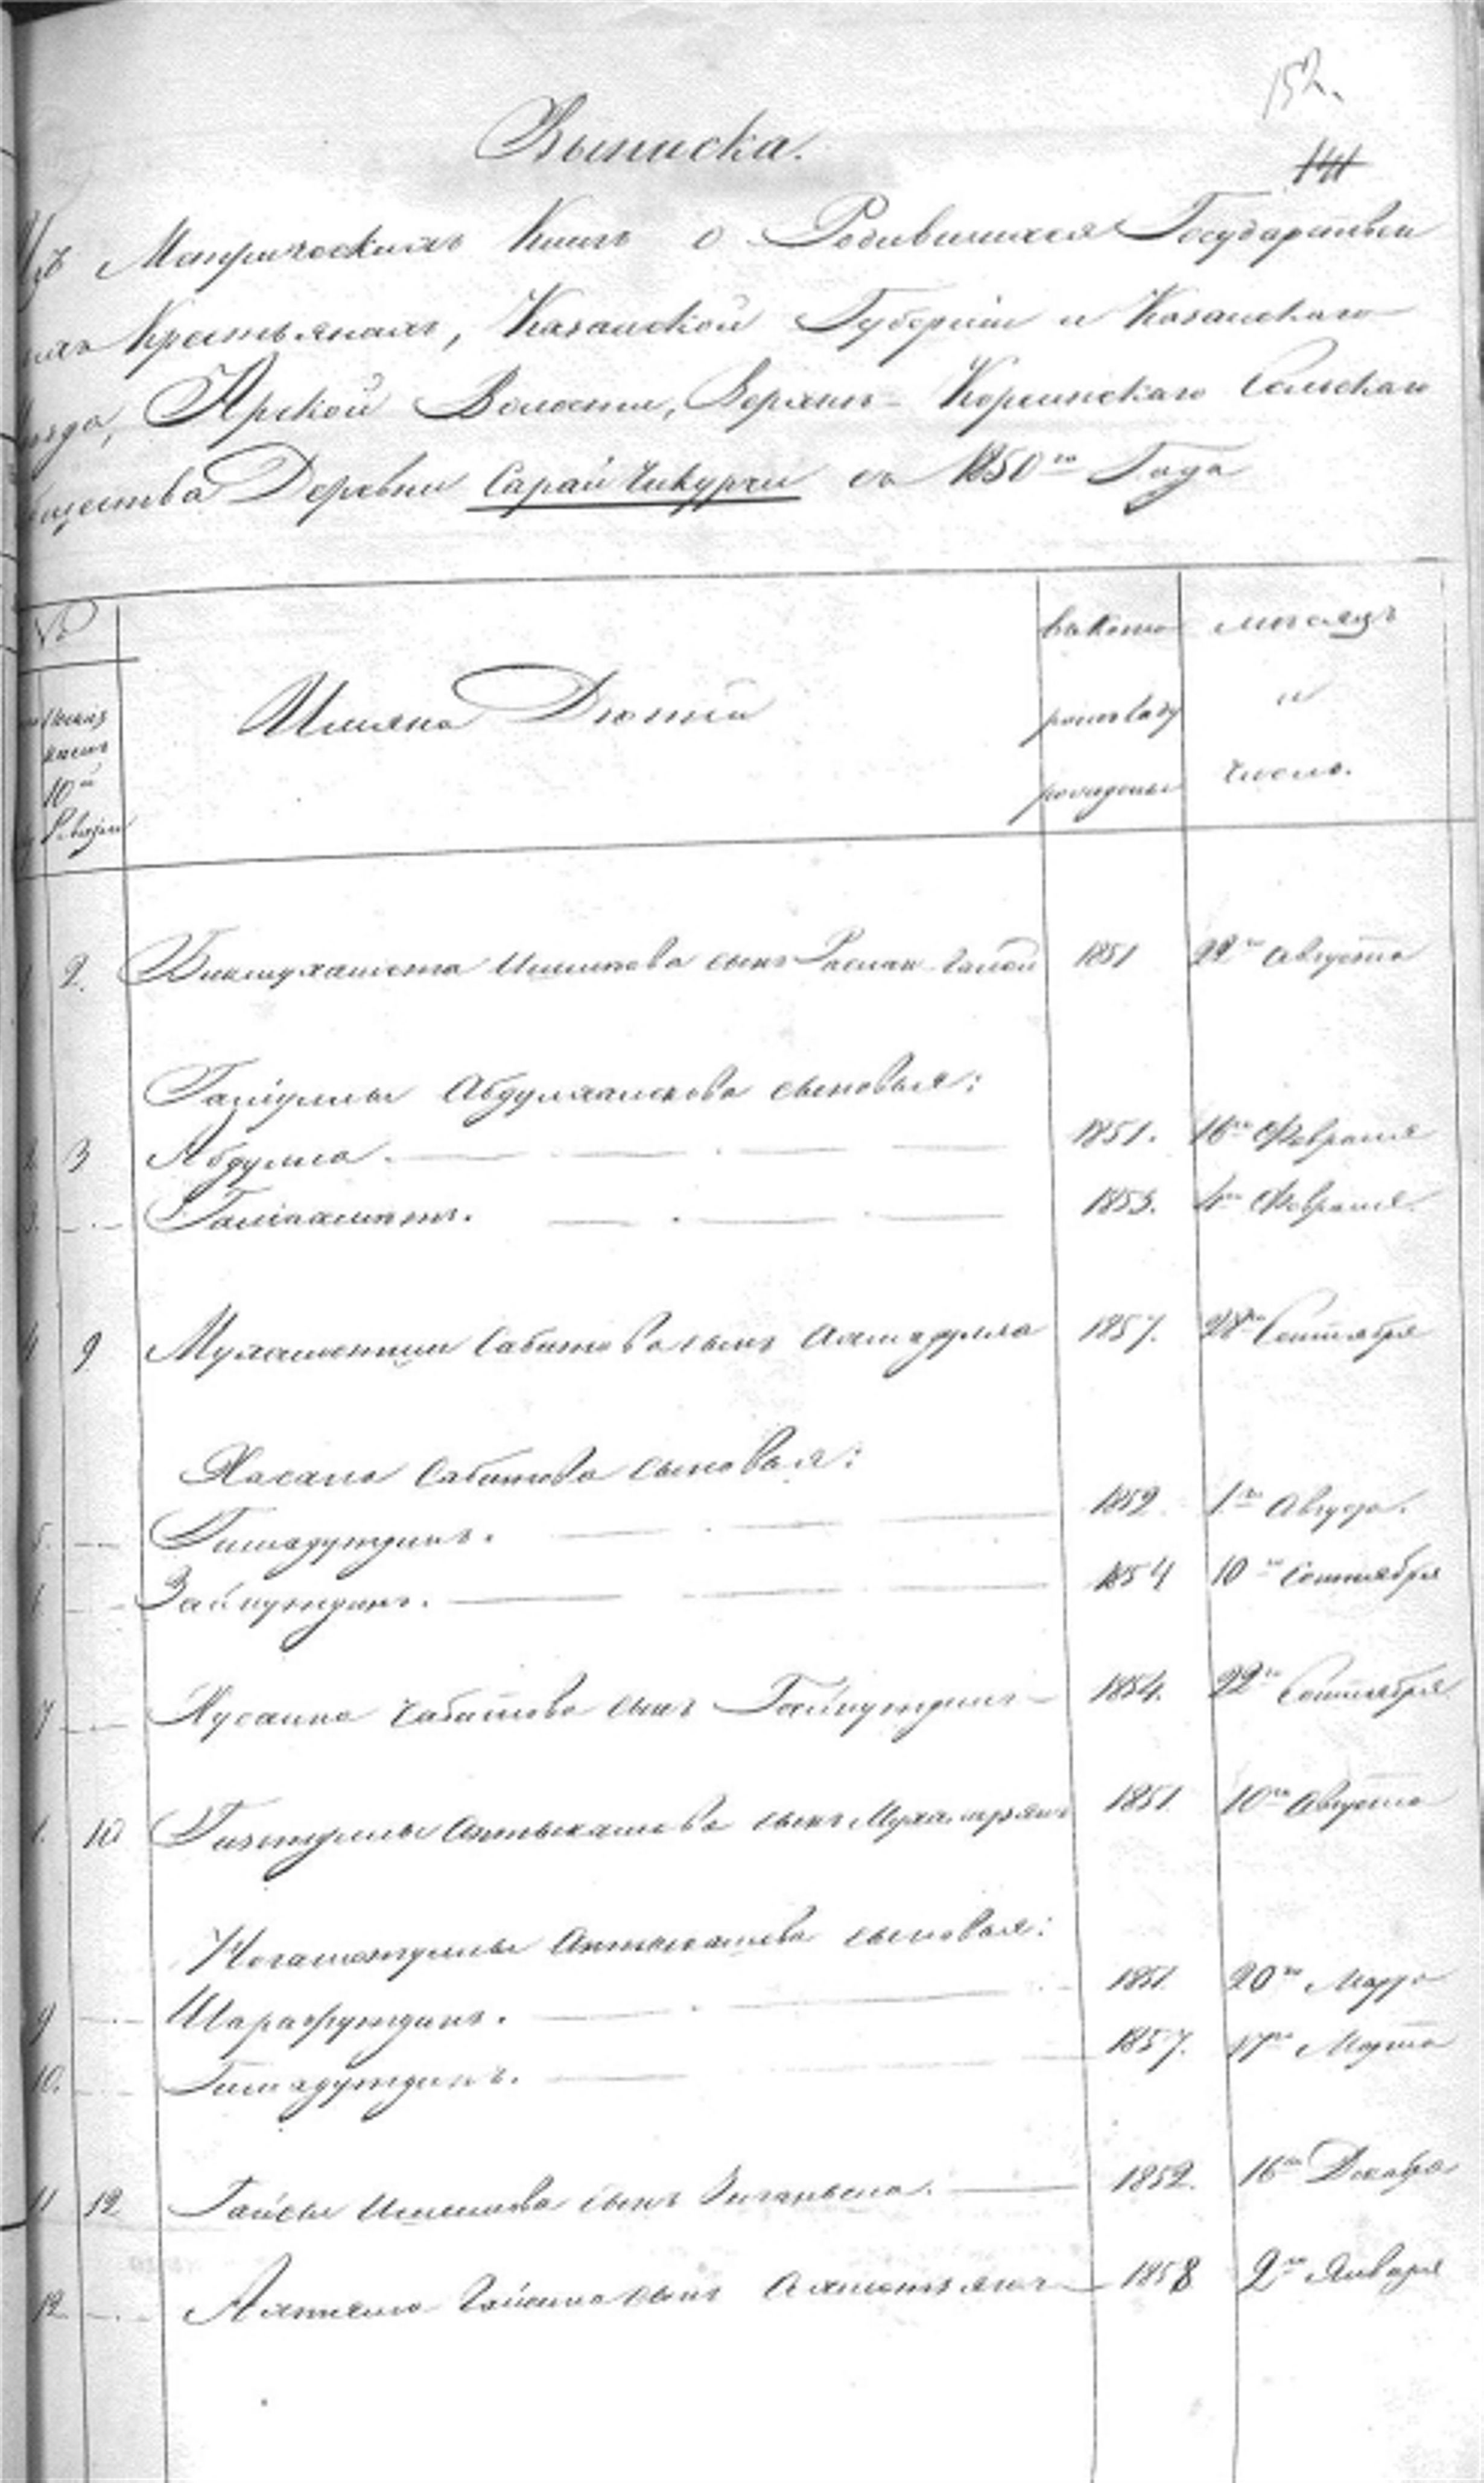 152.
141
Выписка.
Изъ Метрическихъ Книгъ о Родившихся Государствен
ныхъ Крестьянахъ, Казанской Губернiи и Казанскаго
уезда, Арской Волости, Верхнъ-Корсинскаго Сельскаго
общества Деревни Сарай Чикурчи съ 1850го Года
№
10й
Ревизiи
Имяна Дютей
въ кото
ромъ году
рожденые
месяцъ
и
число.
1 2. Бикмухамета Ишимова сынъ 1851 22го Августа
Галiуллы сыновья:
2 3 Абдулла. 1851. 16го Февраля
3. Галiахметъ. 1853. 4го Февраля
4 9 Мухаметши Сабитова сынъ Ахмадулла 1857. 28го Сентября
Хасана Сабитова сыновья:
5. Гимадутдинъ. 1852. 1го Августа.
6 Зайнутдинъ. 1854 10го Сентября
7 Хусаина Сабитова сынъ Гайнутдинъ 1854. 22го Сентября
10 сынъ Мухаметзянъ 1851. 10го Августа
Негаметуллы сыновья:
9 Шарафутдинъ. 1851. 20го Марта
10. Гимадутдинъ. 1857. 17го Марта
11 12 Гайсы Ишимова сынъ 1852. 16го Декабря
12 сынъ Ахметьянъ 1858 2го Января